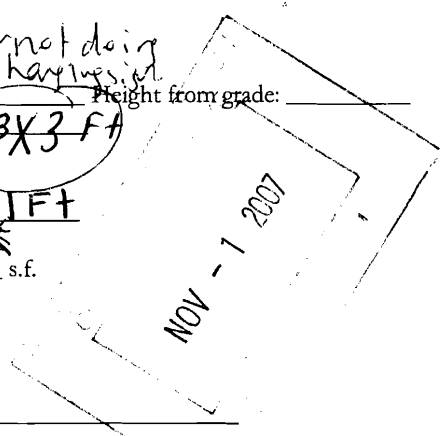 not doing
hanging sign
Height from grade:
3X3 Ft
1 Ft
s.f.
NOV - 1 2007